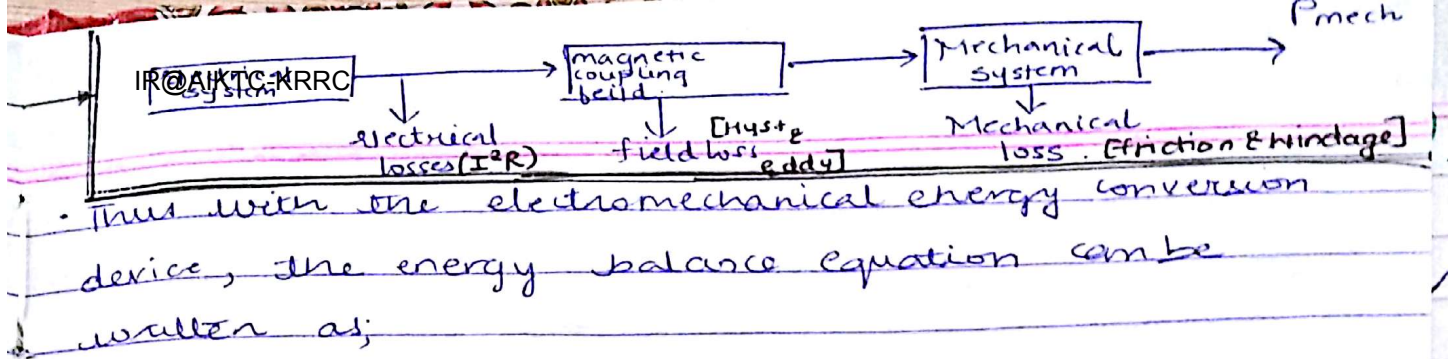 Pmech
IR@AIKTC-KRRC
system
magnetic
coupling
beild.
Mechanical
system
electrical
losses (I²R)
field loss [Hyst &
eddy]
Mechanical
loss. [friction & windage]
. Thus with the electromechanical energy conversion
device, the energy balance equation can be
written as;